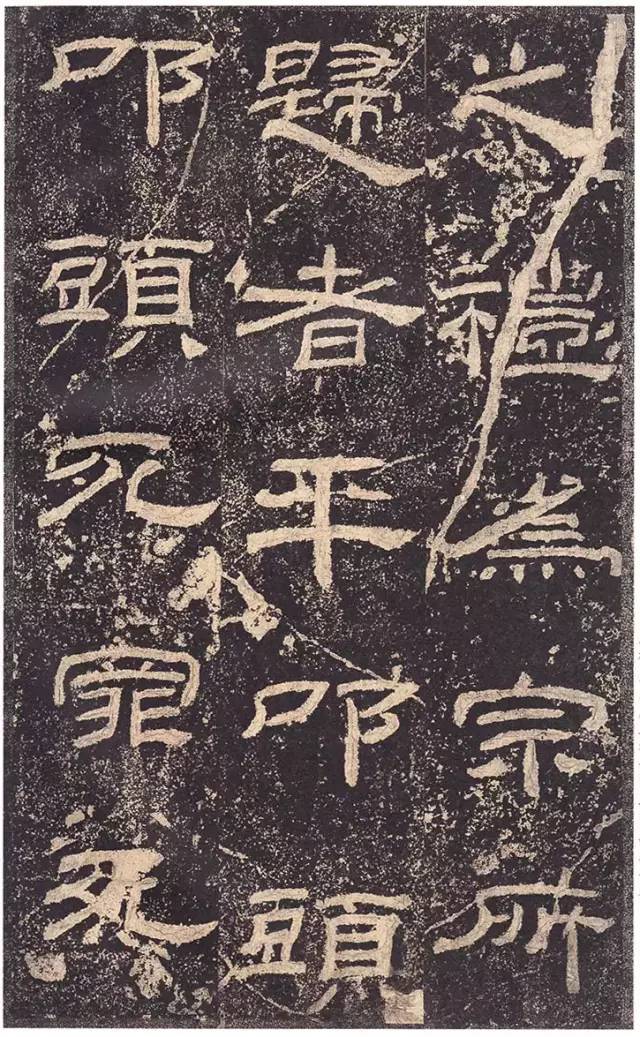 之禮為宗所
歸者平叩頭
叩頭死罪死